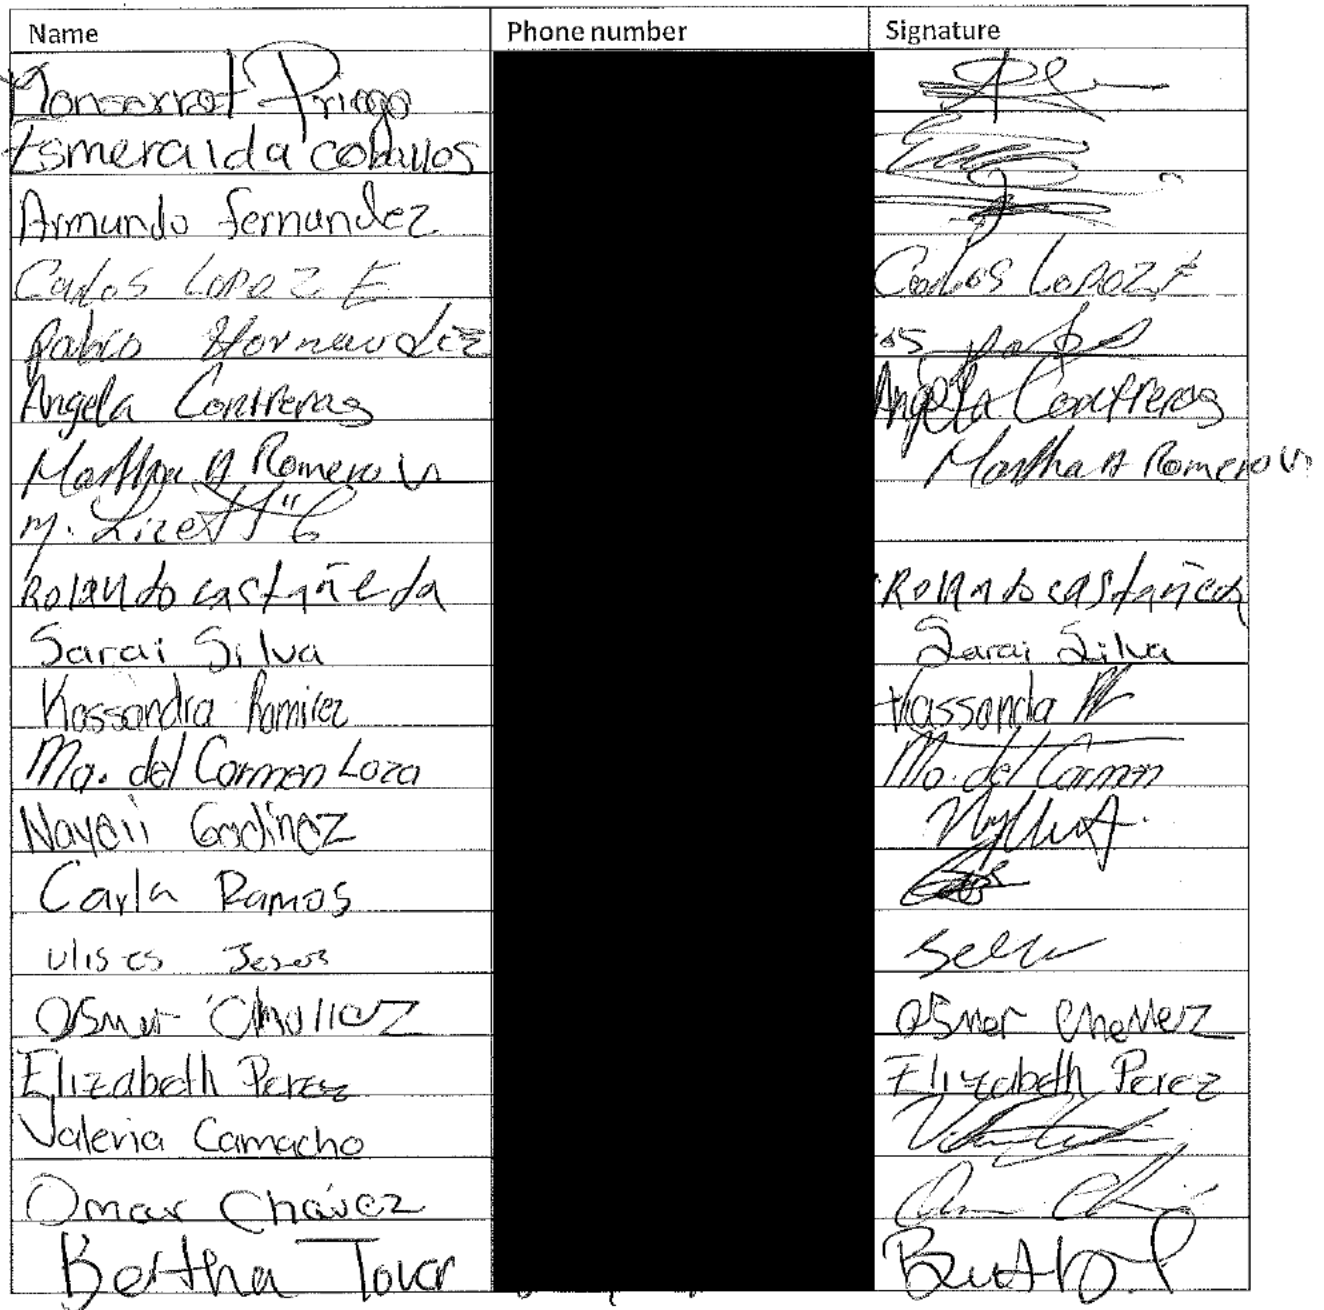 Name Phone number Signature
Monserrat Priego
Esmeralda ceballos
Armando fernandez
Carlos Lopez E Carlos Lopez E
Pablo Hernandez
Angela Contreras Angela Contreras
Martha A Romero V. Martha A Romero V.
M. Lizett
Rolando castañeda Rolando castañeda
Sarai Silva Sarai Silva
Kassandra Ramirez Kassandra R
Ma. del Carmen Loza Ma. del Carmen
Nayeli Godinez
Carla Ramos
Ulises Jesus
Osmar Osmer
Elizabeth Perez Elizabeth Perez
Valeria Camacho
Omar Chávez
Bertha Tovar